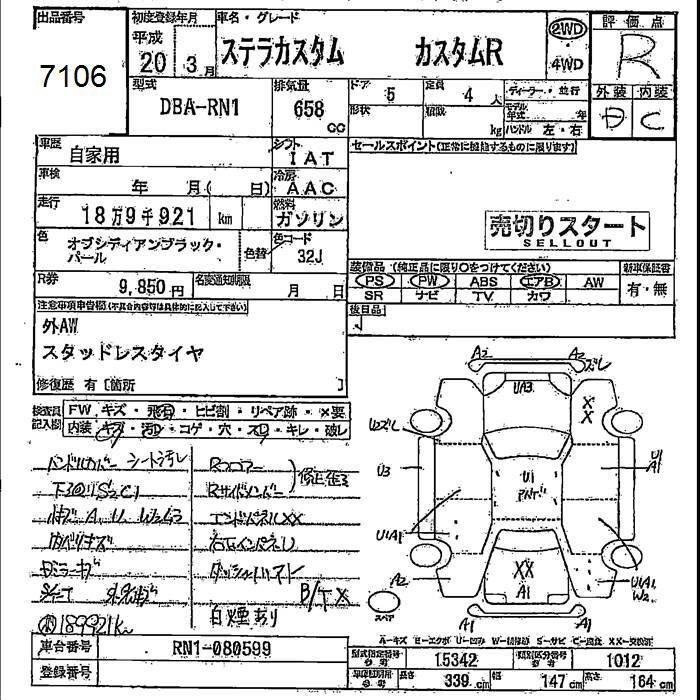 出品番号
7106
初度登録年月
平成
20 3月
車名・グレード
ステラカスタム カスタムR
2WD
4WD
評価点
R
外装 内装
D C
型式
DBA-RN1
排気量
658
cc
ドア
5
定員
4 人
形状
積載
kg
ディーラー・並行
モデル年式 年
ハンドル 左・右
車歴
自家用
シフト
IAT
車検
年 月( 日)
冷房
AAC
走行
18万9千921 km
燃料
ガソリン
色
オブシディアンブラック・パール
色替
色コード
32J
R券
9,850円
名変通知期限
月 日
セールスポイント(正常に機能するものに限ります)
売切りスタート
SELLOUT
装備品(純正品に限り○をつけてください)
新車保証書
PS PW ABS エアB AW
SR ナビ TV カワ
有・無
後日品
注意事項申告欄(不具合内容は具体的に記入して下さい)
外AW
スタッドレスタイヤ
修復歴 有〔箇所 〕
検査員記入欄
FW キズ・飛石・ヒビ割・リペア跡・×要
内装 キズ・汚れ・コゲ・穴・スレ・キレ・破レ
ハンドルカバー シート汚レ
下回りS2C1
内ハリキズ
189921km
Rフロアー
Rサイドメンバー
修正歪
エンドパネルXX
ダッシュボード
B/TX
白煙有り
A2 A2
ズレ
UA3
XX
U3
U1
U1
A1
U1A1
A2
XX
A1
U1A1
W2
A1 A1
スペア
A-キズ
U-凹み
XX-交換済
車台番号
RN1-080599
登録番号
型式指定番号
15342
類別区分番号
1012
長さ
339 cm
幅
147 cm
高さ
164 cm